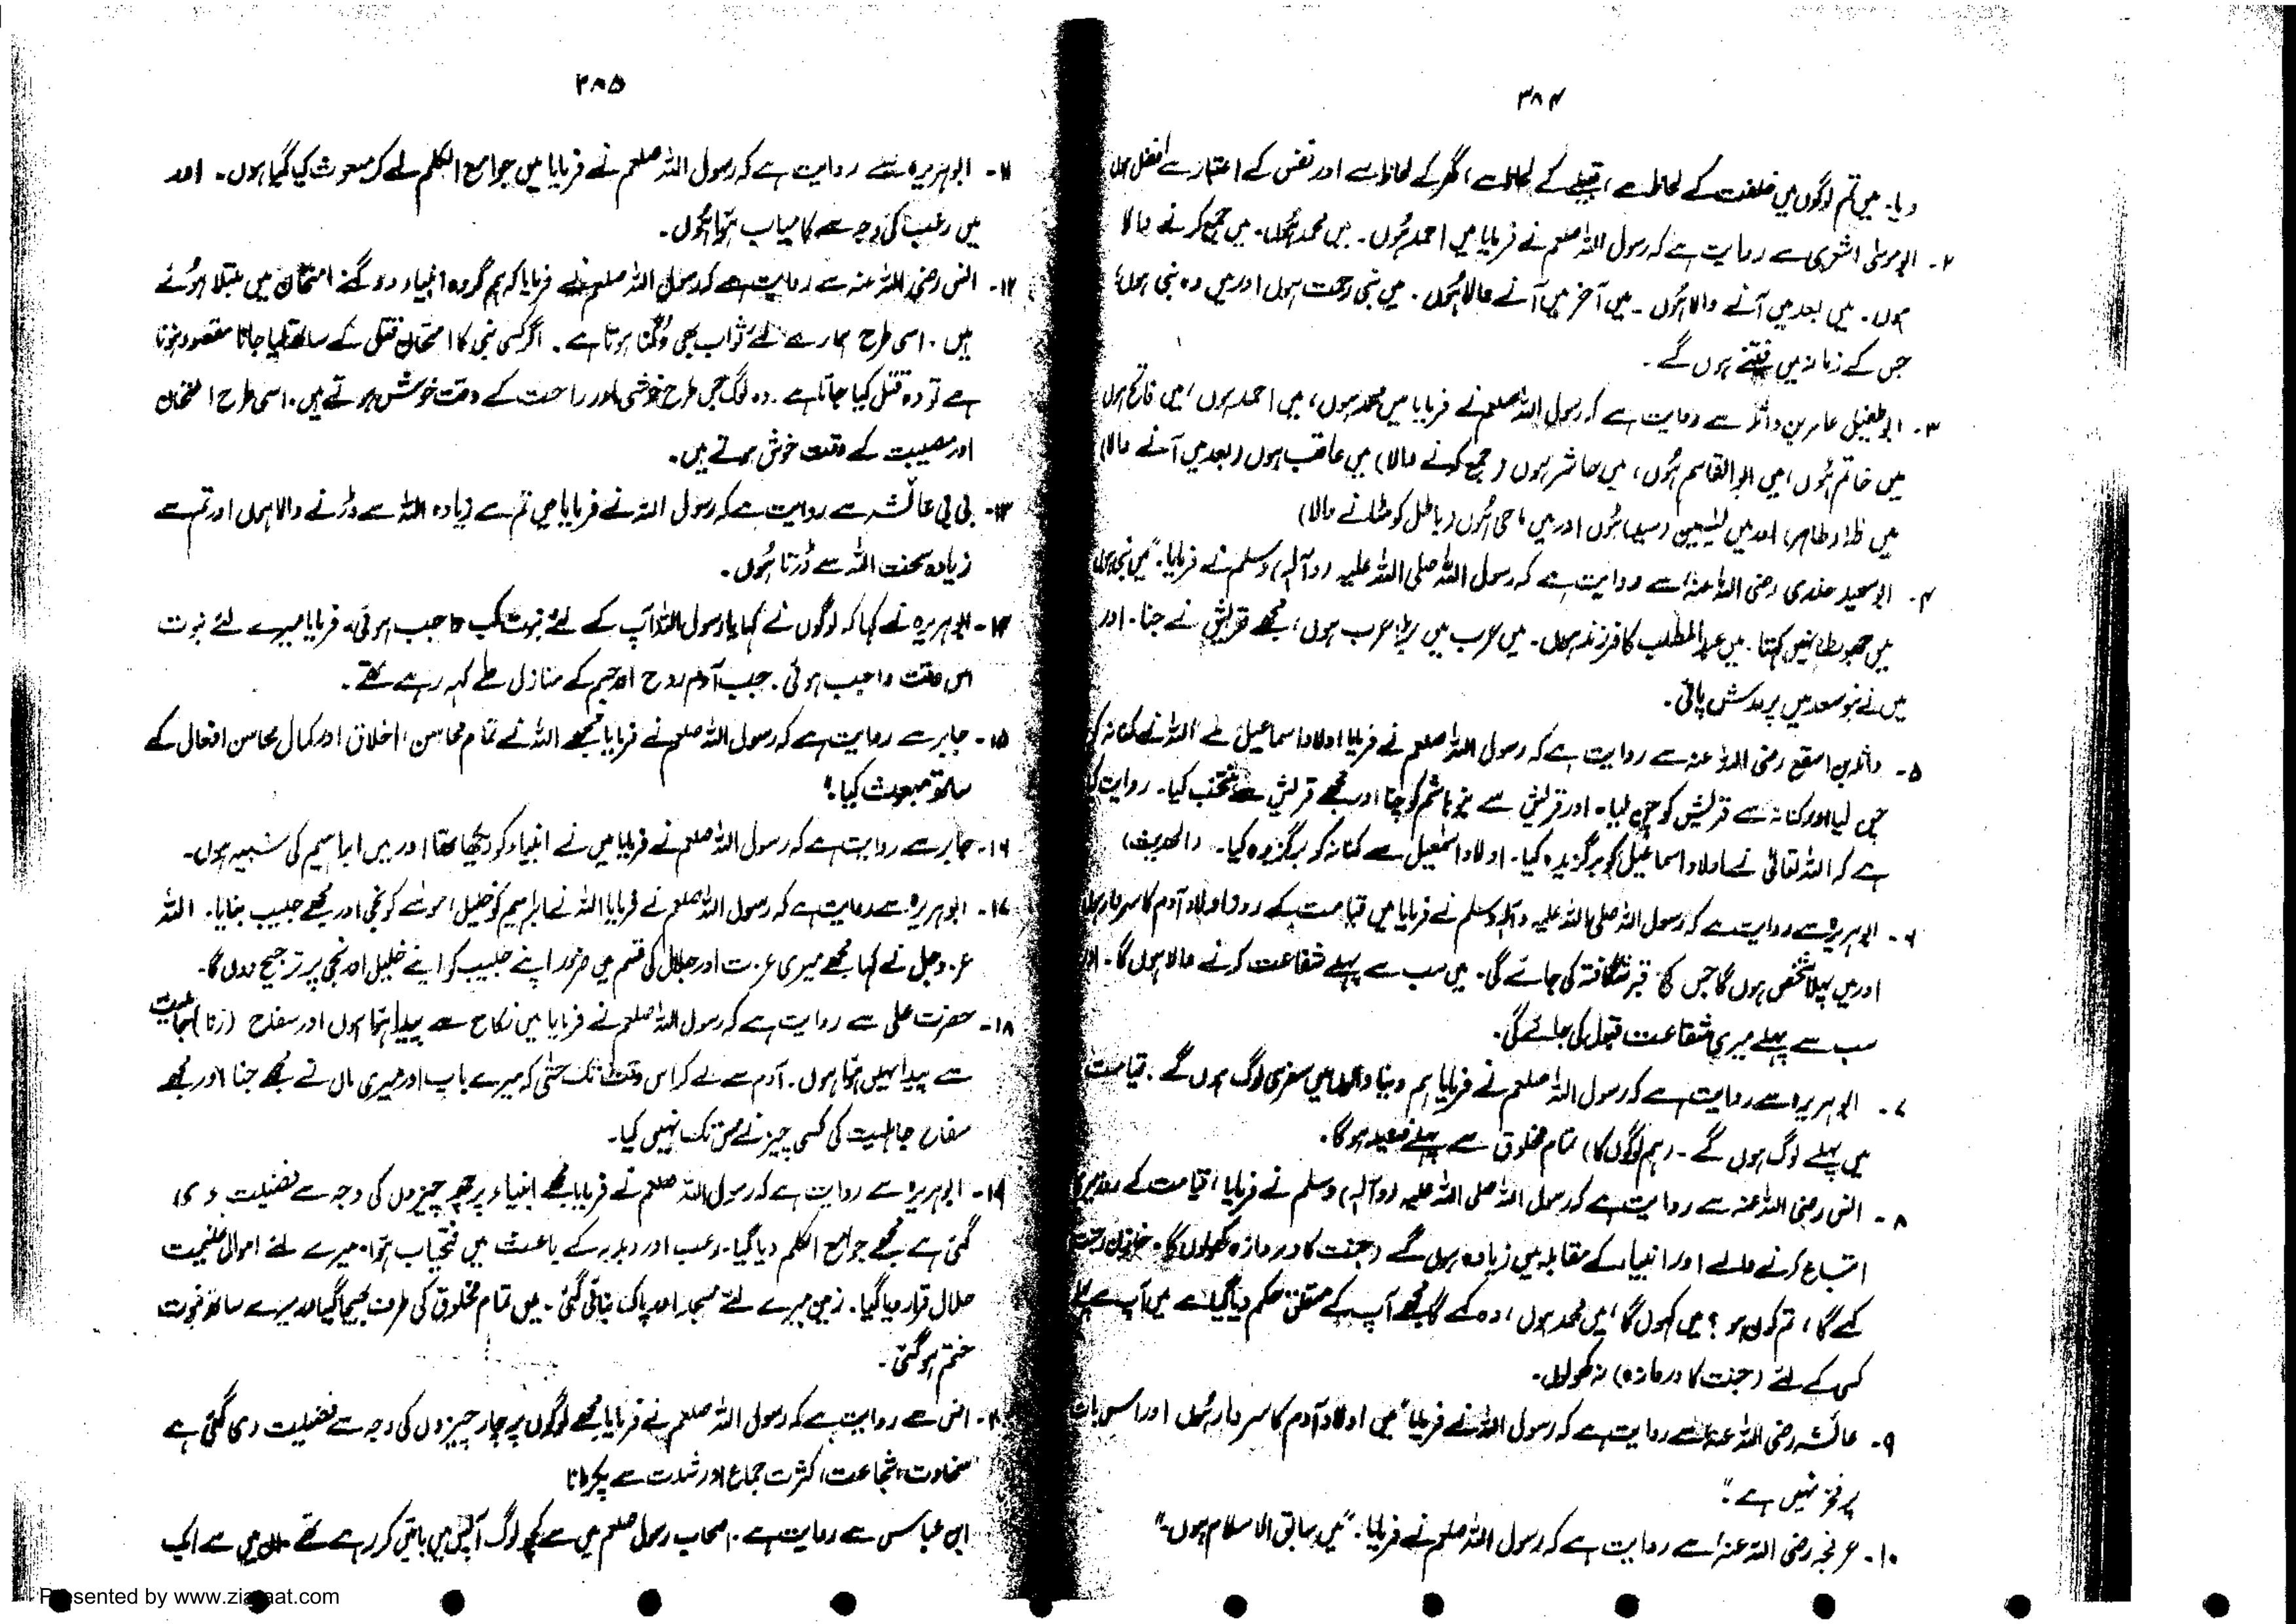 ۳۸۴
دیا۔ میں تم لوگوں میں خلقت کے لحاظ سے، قبیلے کے لحاظ سے، گھر کے لحاظ سے اور نفس کے اعتبار سے افضل ہوں
۲۔ ابوموسیٰ اشعری سے روایت ہے کہ رسول اللہ صلعم نے فرمایا میں احمد ہُوں۔ میں محمد ہُوں۔ میں جمع کرنے والا
ہوں۔ میں بعد میں آنے والا ہُوں۔ میں آخر میں آنے والا ہُوں۔ میں نبی رحمت ہوں اور میں وہ نبی ہوں؛
جس کے زمانہ میں فتنے ہوں گے۔
۳۔ ابوطفیل عامر بن واثلہ سے روایت ہے کہ رسول اللہ صلعم نے فرمایا میں محمد ہوں، میں احمد ہوں، میں فاتح ہوں
میں خاتم ہُوں، میں ابوالقاسم ہُوں، میں حاشر ہوں (جمع کرنے والا) میں عاقب ہوں (بعد میں آنے والا)
میں طٰہٰ (طاہر) اور میں یٰسین (سید) ہُوں اور میں ماحی ہُوں (باطل کو مٹانے والا)
۴۔ ابوسعید خدری رضی اللہ عنہٗ سے روایت ہے کہ رسول اللہ صلی اللہ علیہ (وآلہٖ) وسلم نے فرمایا۔ "میں نبی ہوں
میں جھوٹ نہیں کہتا۔ میں عبدالمطلب کا فرزند ہوں۔ میں عرب میں بڑا عرب ہوں، مجھے قریش نے جنا۔ اور
میں نے بنو سعد میں پرورش پائی۔
۵۔ واثلہ بن اسقع رضی اللہ عنہ سے روایت ہے کہ رسول اللہ صلعم نے فرمایا اولاد اسماعیل سے اللہ نے کنانہ کو
چن لیا اور کنانہ سے قریش کو چن لیا۔ اور قریش سے بنو ہاشم کو چنا اور مجھے قریش سے منتخب کیا۔ روایت کی
ہے کہ اللہ تعالیٰ نے اولاد اسماعیل کو برگزیدہ کیا۔ اولاد اسمٰعیل سے کنانہ کو برگزیدہ کیا۔ (الحدیث)
۶۔ ابوہریرہ سے روایت ہے کہ رسول اللہ صلی اللہ علیہ وآلہٖ وسلم نے فرمایا میں قیامت کے روز اولاد آدم کا سردار ہوں
اور میں پہلا شخص ہوں گا جس کی قبر شگافتہ کی جائے گی۔ میں سب سے پہلے شفاعت کرنے والا ہوں گا۔ اور
سب سے پہلے میری شفاعت قبول کی جائے گی۔
۷۔ ابوہریرہ سے روایت ہے کہ رسول اللہ صلعم نے فرمایا ہم دنیا والوں میں آخری لوگ ہوں گے۔ قیامت
میں پہلے لوگ ہوں گے۔ (ہم لوگوں کا) تمام مخلوق سے پہلے فیصلہ ہوگا۔
۸۔ انس رضی اللہ عنہ سے روایت ہے کہ رسول اللہ صلی اللہ علیہ (وآلہٖ) وسلم نے فرمایا، قیامت کے روز میری
اتباع کرنے والے اور انبیاء کے مقابلہ میں زیادہ ہوں گے (جنت کا دروازہ کھولوں گا۔ خازن جنت
کہے گا، تم کون ہو؟ میں کہوں گا، میں محمد ہوں، وہ کہے گا مجھے آپ کے متعلق حکم دیا گیا ہے میں آپ سے پہلے
کسی کے لئے (جنت کا دروازہ) نہ کھولوں۔
۹۔ عائشہ رضی اللہ عنہا سے روایت ہے کہ رسول اللہ نے فرمایا "میں اولاد آدم کا سردار ہُوں اور اس بات
پر فخر نہیں ہے۔"
۱۰۔ عرفجہ رضی اللہ عنہٗ سے روایت ہے کہ رسول اللہ صلعم نے فرمایا۔ "میں سابق الاسلام ہوں۔"
۳۸۵
۱۱۔ ابوہریرہ سے روایت ہے کہ رسول اللہ صلعم نے فرمایا میں جوامع الکلم لے کر مبعوث کیا گیا ہوں۔ اور
میں رعب کی وجہ سے کامیاب ہُوا ہُوں۔
۱۲۔ انس رضی اللہ عنہ سے روایت ہے کہ رسول اللہ صلعم نے فرمایا کہ ہم گروہ انبیاء دوگنے امتحان میں مبتلا ہوئے
ہیں۔ اسی طرح ہمارے لئے ثواب بھی دُگنا ہوتا ہے۔ اگر کسی نبی کا امتحان قتل کے ساتھ لیا جانا مقصود ہوتا
ہے تو وہ قتل کیا جاتا ہے۔ وہ لوگ جس طرح خوشی اور راحت کے وقت خوش ہوتے ہیں۔ اسی طرح امتحان
اور مصیبت کے وقت خوش ہوتے ہیں۔
۱۳۔ بی بی عائشہ سے روایت ہے کہ رسول اللہ نے فرمایا میں تم سے زیادہ اللہ سے ڈرنے والا ہوں اور تم سے
زیادہ سخت اللہ سے ڈرتا ہُوں۔
۱۴۔ ابوہریرہ نے کہا کہ لوگوں نے کہا یا رسول اللہ آپ کے لئے نبوت کب واجب ہوئی۔ فرمایا میرے لئے نبوت
اس وقت واجب ہوئی۔ جب آدم روح اور جسم کے منازل طے کر رہے تھے۔
۱۵۔ جابر سے روایت ہے کہ رسول اللہ صلعم نے فرمایا مجھے اللہ نے تمام محاسن، اخلاق اور کمال محاسن افعال کے
ساتھ مبعوث کیا۔"
۱۶۔ جابر سے روایت ہے کہ رسول اللہ صلعم نے فرمایا میں نے انبیاء کو دیکھا تھا اور میں ابراہیم کی شبیہہ ہوں۔
۱۷۔ ابوہریرہ سے روایت ہے کہ رسول اللہ صلعم نے فرمایا اللہ نے ابراہیم کو خلیل، موسےٰ کو نجی اور مجھے حبیب بنایا۔ اللہ
عزوجل نے کہا مجھے میری عزت اور جلال کی قسم میں ضرور اپنے حبیب کو اپنے خلیل اور نجی پر ترجیح دوں گا۔
۱۸۔ حضرت علی سے روایت ہے کہ رسول اللہ صلعم نے فرمایا میں نکاح سے پیدا ہُوا ہوں اور سفاح (زنا) جاہلیت
سے پیدا نہیں ہُوا ہوں۔ آدم سے لے کر اس وقت تک حتٰی کہ میرے باپ اور میری ماں نے مجھے جنا اور مجھے
سفاح جاہلیت کی کسی چیز نے مس تک نہیں کیا۔
۱۹۔ ابوہریرہ سے روایت ہے کہ رسول اللہ صلعم نے فرمایا مجھے انبیاء پر چھ چیزوں کی وجہ سے فضیلت دی
گئی ہے مجھے جوامع الکلم دیا گیا۔ رعب اور دبدبہ کے باعث میں فتحیاب ہُوا۔ میرے لئے اموال غنیمت
حلال قرار دیا گیا۔ زمین میرے لئے مسجد اور پاک بنائی گئی۔ میں تمام مخلوق کی طرف بھیجا گیا اور میرے ساتھ نبوت
ختم ہو گئی۔
۲۰۔ انس سے روایت ہے کہ رسول اللہ صلعم نے فرمایا مجھے لوگوں پر چار چیزوں کی وجہ سے فضیلت دی گئی ہے
سخاوت، شجاعت، کثرت جماع اور شدت سے پکڑنا
ابن عباس سے روایت ہے۔ اصحاب رسول صلعم میں سے کچھ لوگ آپس میں باتیں کر رہے تھے۔ ان میں سے ایک
Presented by www.ziaraat.com